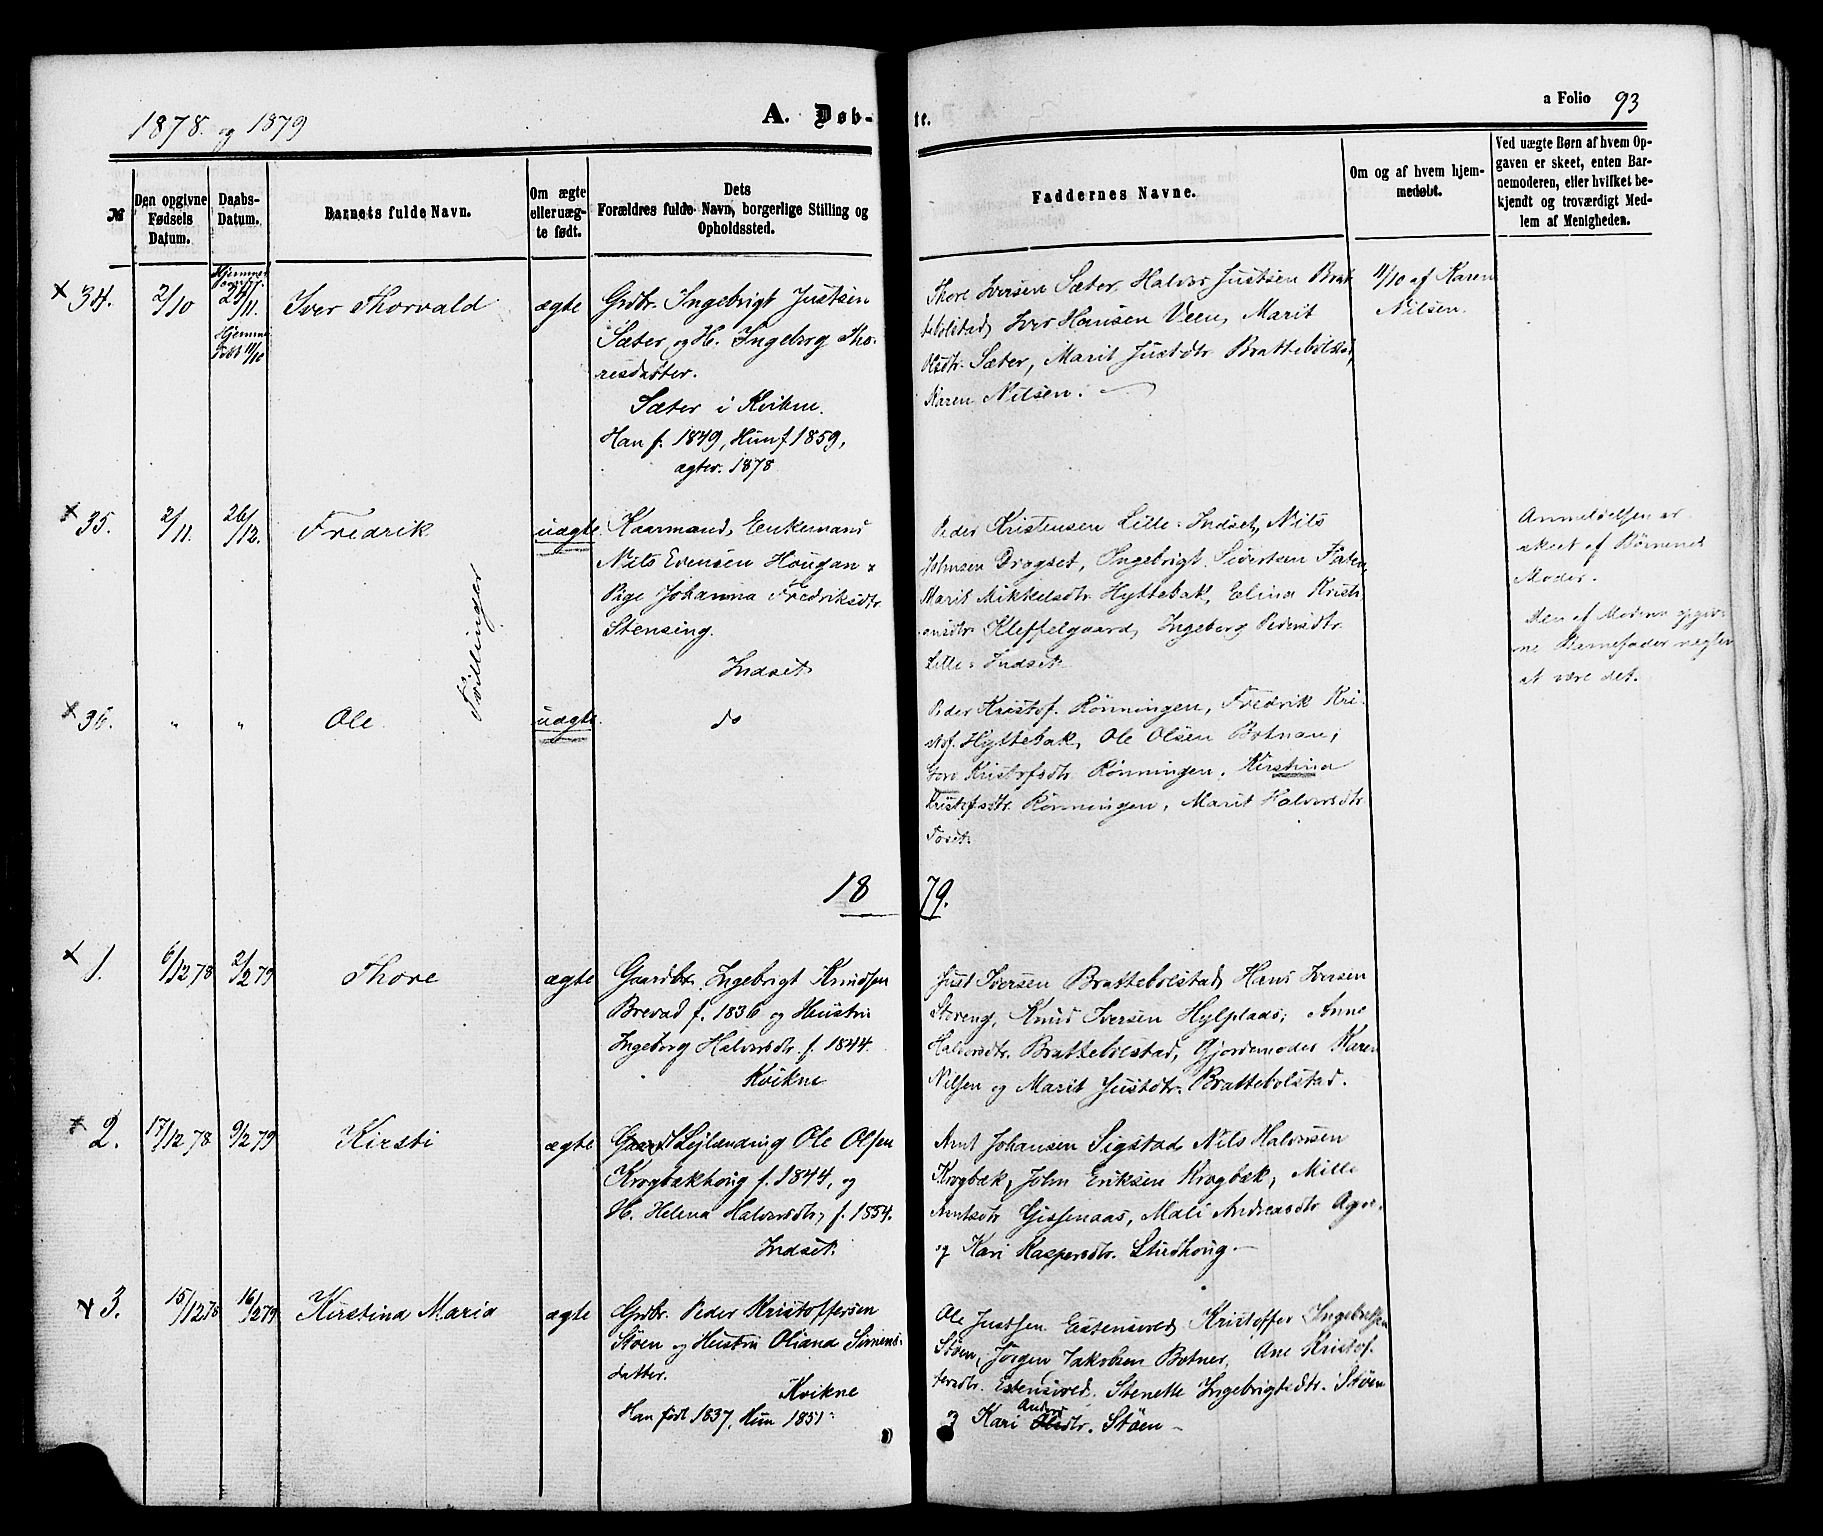 1878 og 1879
A. Døb-
te.
a Folio 93
№
Den opgivne Fødsels Datum.
Daabs-Datum.
Barnets fulde Navn.
Om ægte eller uægte født.
Dets
Forældres fulde Navn, borgerlige Stilling og Opholdssted.
Faddernes Navne.
Om og af hvem hjemmedøbt.
Ved uægte Børn af hvem Opgaven er skeet, enten Barnemoderen, eller hvilket bekjendt og troværdigt Medlem af Menigheden.
× 34.
2/10
24/11.
Hjemme døbt 11/10
Iver Thorvald
ægte
Grdbr. Ingebrigt Justsen
Sæter, og H. Ingeborg Tho-
resdatter.
Sæter i Kvikne.
Han f. 1849, Hun f 1859,
ægtev. 1878
Thore Iversen Sæter, Halvor Justsen Brat
tebolstad, Iver Hansen Veen, Marit
Olsdtr. Sæter, Marit Justdtr Brattebolstad,
Karen Nilsen.
11/10 af Karen
Nilsen.
× 35.
2/11.
26/12.
Fredrik
uægte
Kaarmand, Enkemand
Nils Evensen Hougan &
Pige Johanna Fredriksdtr.
Stensing.
Indset
Peder Kristensen Lille-Indset, Nils
Johnsen Dragset, Ingebrigt Sivertsen
Marit Mikkelsdtr Hyttebak, Elina Krist
ensdtr. Kleffelgaard, Ingeborg Pedersdtr.
Lille-Indset.
Anmeldelsen er
skeet af Børnenes
Moder.
Den af Moderen opgiv-
ne Barnefader negter
at være det.
Tvillinger
× 36.
"
"
Ole
uægte.
do
Peder Kristof. Rønningen, Fredrik Kri-
stof. Hyttebak, Ole Olsen Botnan,
Kristofsdtr Rønningen, Kirstina
Kristofsdtr. Rønningen, Marit Halvorsdtr.
Foset.
1879.
× 1.
6/12 78
2/2 79
Thore
ægte
Gaardbr. Ingebrigt Knudsen
Brevad f. 1836 og Hustru
Ingeborg Halvorsdtr. f. 1844.
Kvikne
Just Iversen Brattebolstad, Hans Iversen
Storeng, Knud Iversen Hylplads, Anne
Halvorsdtr. Brattebolstad, Gjordemoder Karen
Nilsen og Marit Justdtr. Brattebolstad.
× 2.
17/12 78
9/2 79
Kirsti
ægte
Leilænding Ole Olsen
Krogbækhoug f. 1844, og
H. Helena Halvorsdtr, f. 1854.
Indset.
Arnt Johansen Sigstad, Nils Halvorsen
Krogbæk, John Eriksen Krogbæk, Mille
Arntsdtr Gissenaas, Mali Andreasdtr
og Kari Kaspersdtr. Stubhoug.
× 3.
15/12 78
16/2 79
Kirstina Maria
ægte
Grdbr. Peder Kristoffersen
Støen og Hustru Oliana Simens-
datter.
Kvikne
Han født 1837, Hun 1851.
Ole Justsen Estensved, Kristoffer Ingebrigtsen
Støen, Jørgen Jakobsen Botner, Ane Kristof-
fersdtr. Estensved, Stenette Ingebrigtsdtr. Støen
og Kari Anders dtr. Støen